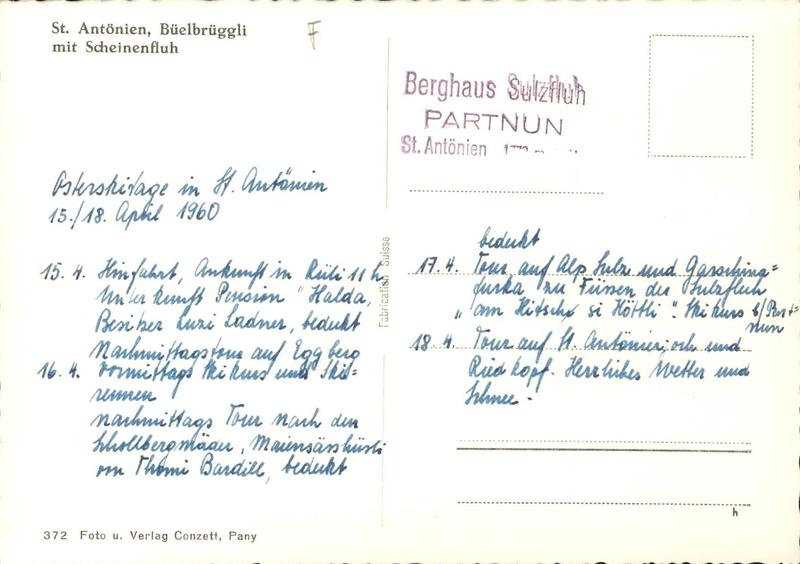 St. Antönien, Büelbrüggli
mit Scheinenfluh
F
Berghaus Sulzfluh
PARTNUN
St. Antönien
Osterskitage in St. Antönien
15./18. April 1960
15. 4. Hinfahrt, Ankunft in Rüti 11 h
Unterkunft Pension "Halda,
Besitzer Luzi Ladner, bedeckt
Nachmittagstour auf Eggberg
16. 4. Vormittags Skikurs und Ski=
rennen
nachmittags Tour nach den
Schollbergmäder, Maiensässhüsli
von Thömi Bardill, bedeckt
Fabrication Suisse
bedeckt
17. 4. Tour auf Alp Sulz und Garschina=
furka zu Füssen der Sulzfluh
"am Hitsche si Höttli". Skikurs b/Part=
nun
18. 4. Tour auf St. Antönierjoch und
Riedkopf. Herrliches Wetter und
Schnee.
h
372 Foto u. Verlag Conzett, Pany